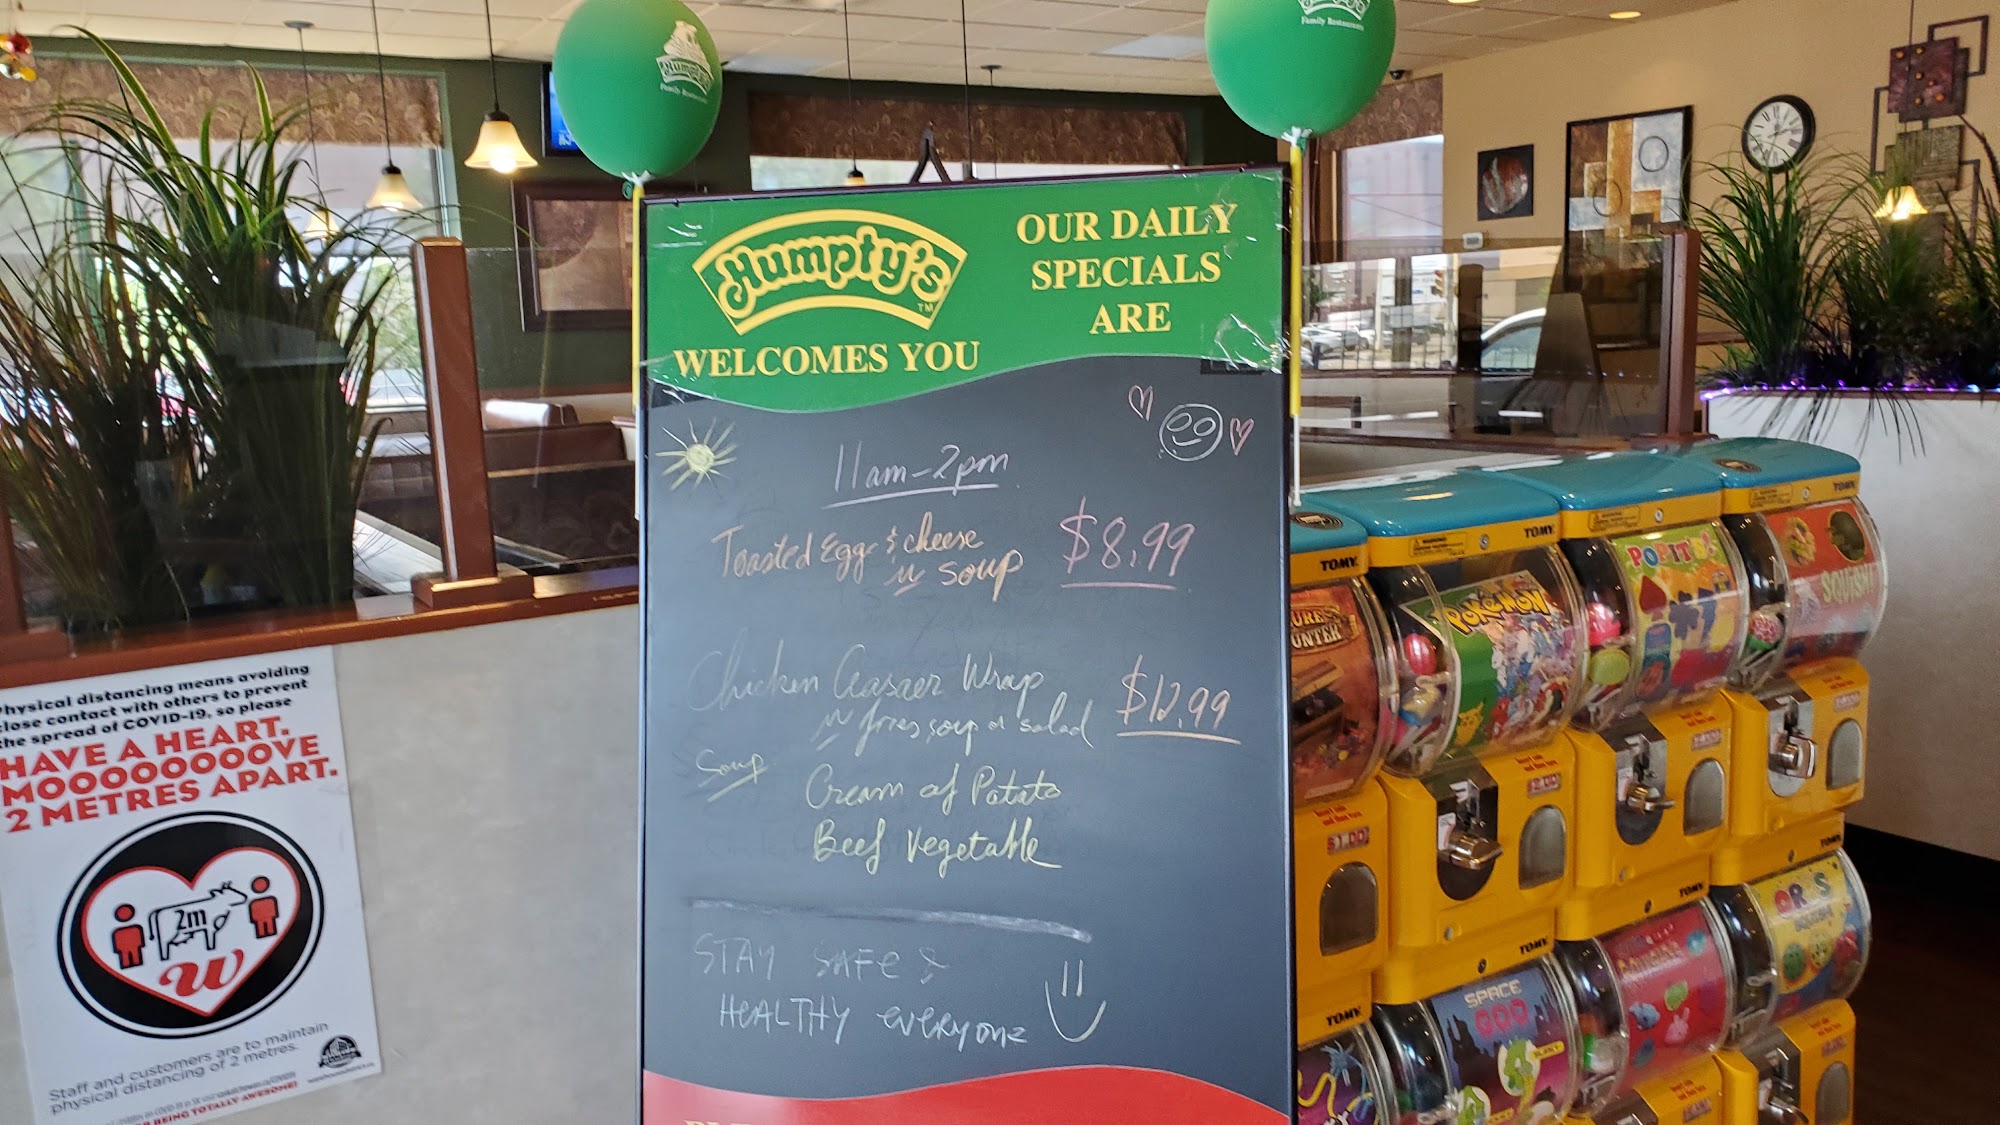 Humpty's
Family Restaurants
Humpty's
Family Restaurants
Humpty's
TM
WELCOMES YOU
OUR DAILY
SPECIALS
ARE
11am-2pm
Toasted Egg & cheese
w soup
$8.99
Chicken Ceasaer Wrap
w fries, soup or salad
$12.99
Soup
Cream of Potato
Beef Vegetable
STAY SAFE &
HEALTHY everyone
Physical distancing means avoiding
close contact with others to prevent
the spread of COVID-19, so please
HAVE A HEART.
MOOOOOOOOVE
2 METRES APART.
2m
w
Staff and customers are to maintain
physical distancing of 2 metres.
BEING TOTALLY AWESOME!
TOMY
TOMY
TOMY
TOMY
POKéMON
POP IT!
SQUISH!
$1.00
$2.00
TOMY
TOMY
TOMY
TOMY
SPACE
GOO
ORBS